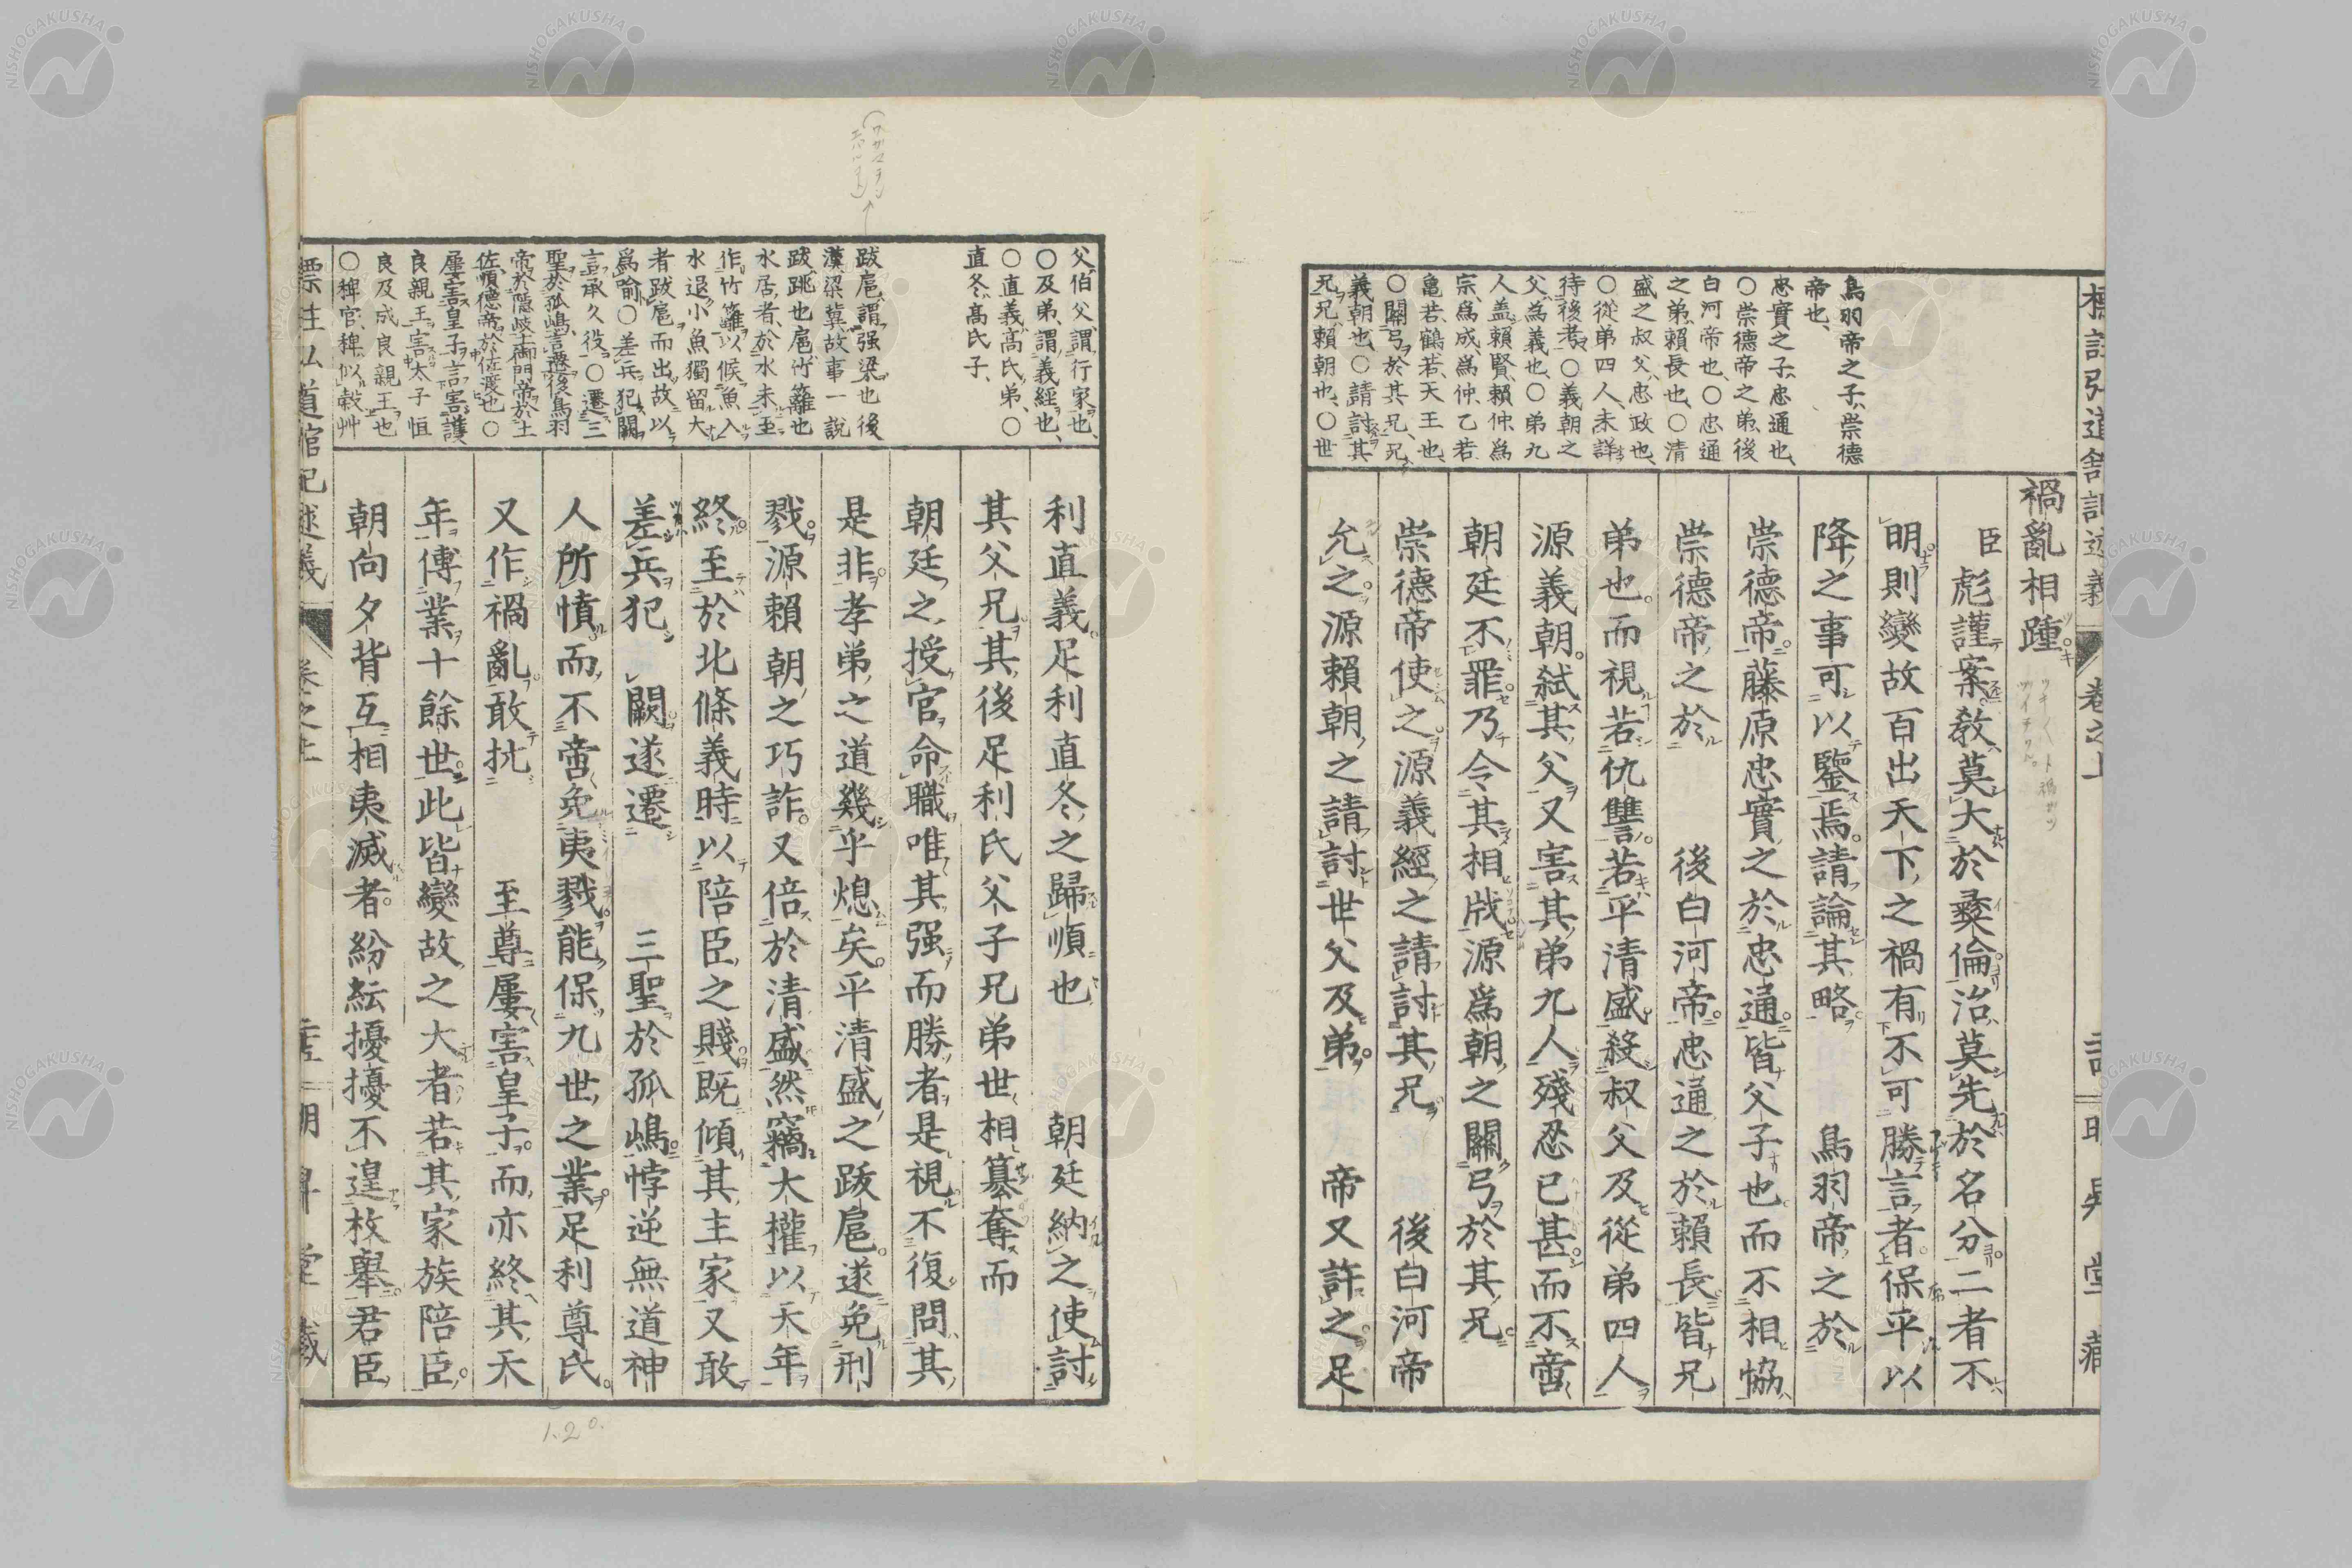 標註弘道館記述義
卷之上
禍亂相踵
臣彪謹案教莫大於彝倫治莫先於名分二者不
明則變故百出天下之禍有不可勝言者保平以
降之事可以鑒焉請論其略 鳥羽帝之於
崇德帝藤原忠實之於忠通皆父子也而不相協
崇德帝之於 後白河帝忠通之於賴長皆兄
弟也而視若仇讐若平清盛殺叔父及從弟四人
源義朝弑其父又害其弟九人殘忍已甚而不啻
朝廷不罪乃令其相戕源爲朝之關弓於其兄
崇德帝使之源義經之請討其兄 後白河帝
允之源賴朝之請討世父及弟 帝又許之足
鳥羽帝之子、崇德
帝也、
忠實之子、忠通也、
○崇德帝之弟、後
白河帝也、○忠通
之弟、賴長也、○清
盛之叔父、忠政也、
○從弟四人、未詳
待後考、○義朝之
父、爲義也、○弟九
人、蓋賴賢、賴仲、爲
宗、爲成、爲仲、乙若
龜若、鶴若、天王也、
○關弓於其兄、兄、
義朝也、○請討其
兄、兄、賴朝也、○世
利直義足利直冬之歸順也 朝廷納之使討
其父兄其後足利氏父子兄弟世相簒奪而
朝廷之授官命職唯其强而勝者是視不復問其
是非孝弟之道幾乎熄矣平清盛之跋扈遂免刑
戮源賴朝之巧詐又倍於清盛然竊大權以天年
終至於北條義時以陪臣之賤既傾其主家又敢
差兵犯 闕遂遷 三聖於孤嶋悖逆無道神
人所憤而不啻免夷戮能保九世之業足利尊氏
又作禍亂敢抗 至尊屢害皇子而亦終其天
年傳業十餘世此皆變故之大者若其家族陪臣
朝向夕背互相夷滅者紛紜擾擾不遑枚舉君臣
父、伯父、謂行家也、
○及弟、謂義經也、
○直義、高氏弟、○
直冬、高氏子、
跋扈、謂强梁也、後
漢梁冀故事、一說
跋、跳也、扈、竹籬也
水居者、於水未至
作竹籬以候魚入
水退小魚獨留、大
者跋扈而出、故以
爲喻、○差兵犯闕、
言承久役、○遷三
聖於孤嶋、言遷後鳥羽
帝於隱岐土御門帝於土
佐、順德帝於佐渡也、○
屢害皇子、言害護
良親王、害太子恒
良及成良親王也
○稗官、稗、似穀艸
標註弘道館記述義
卷之上
1.20.
NISHOGAKUSHA